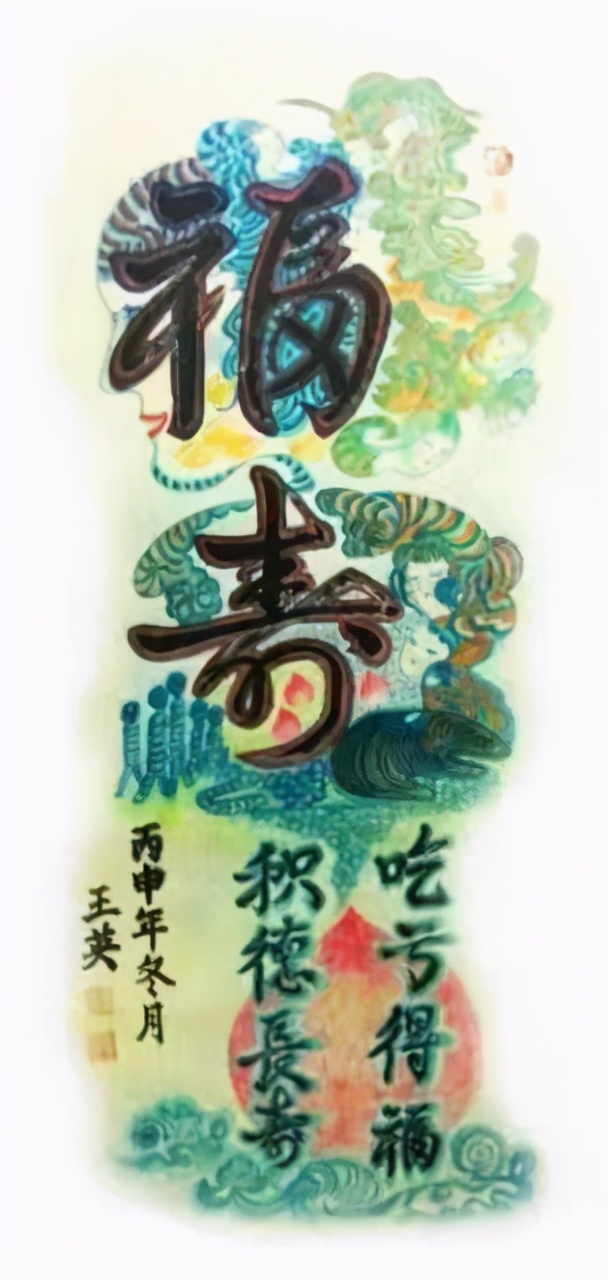 福
寿
吃亏得福
积德長寿
丙申年冬月
王英